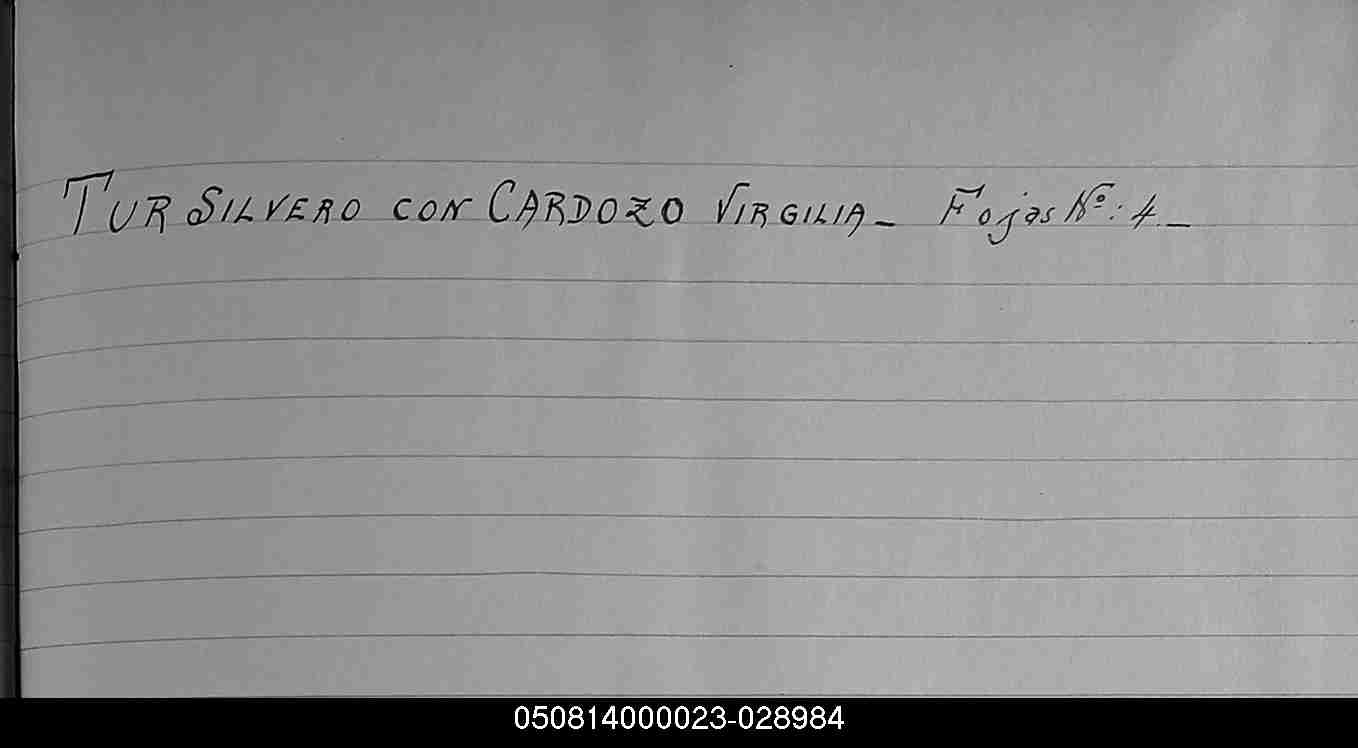 TUR SILVERO CON CARDOZO VIRGILIA_ Fojas Nº: 4._
050814000023-028984